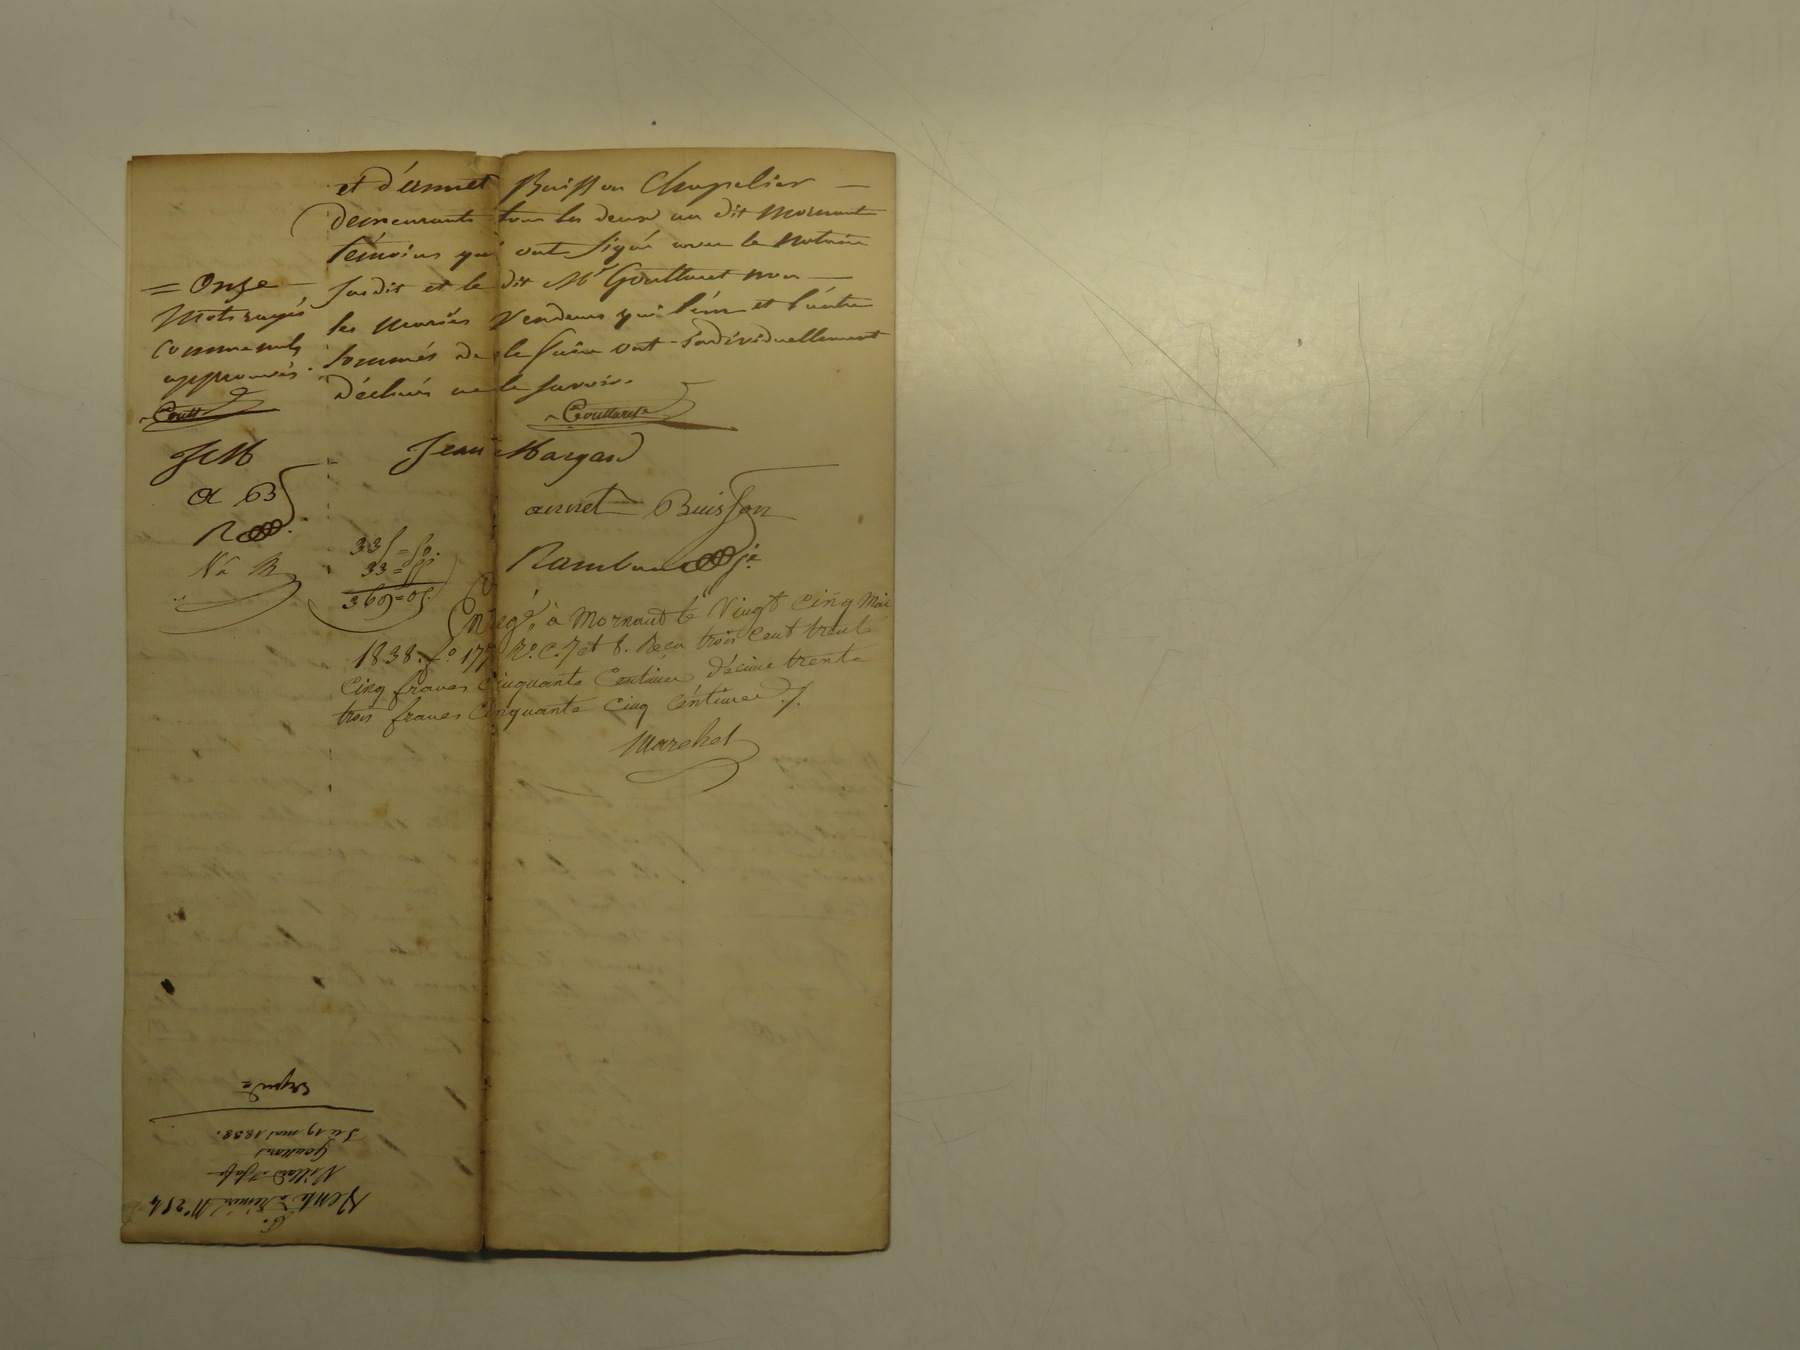 et d'annet Buisson Chapelier —
demeurants tous les deux au dit Mornant
témoins qui ont signé avec le notaire
susdit et le dit Mr Goutteret non —
les mariés Vendeurs qui l'un et l'autre
sommés de le faire ont individuellement
déclaré ne le savoir.
= Onze —
Mots rayés
comme nuls
approuvés.
Goutt
Goutteret
JM
Jean Margard
a B
annet Buisson
R
335 = 50.
33 = 55
369 = 05.
Enregé. à Mornant le Vingt cinq Mai
1838. fo 177 Ro. C. 7 et 8. Reçu trois cent trente
cinq francs cinquante Centimes décime trente
trois francs cinquante cinq centimes ./.
Marchet
Vente No 254
Du 19 mai 1838.